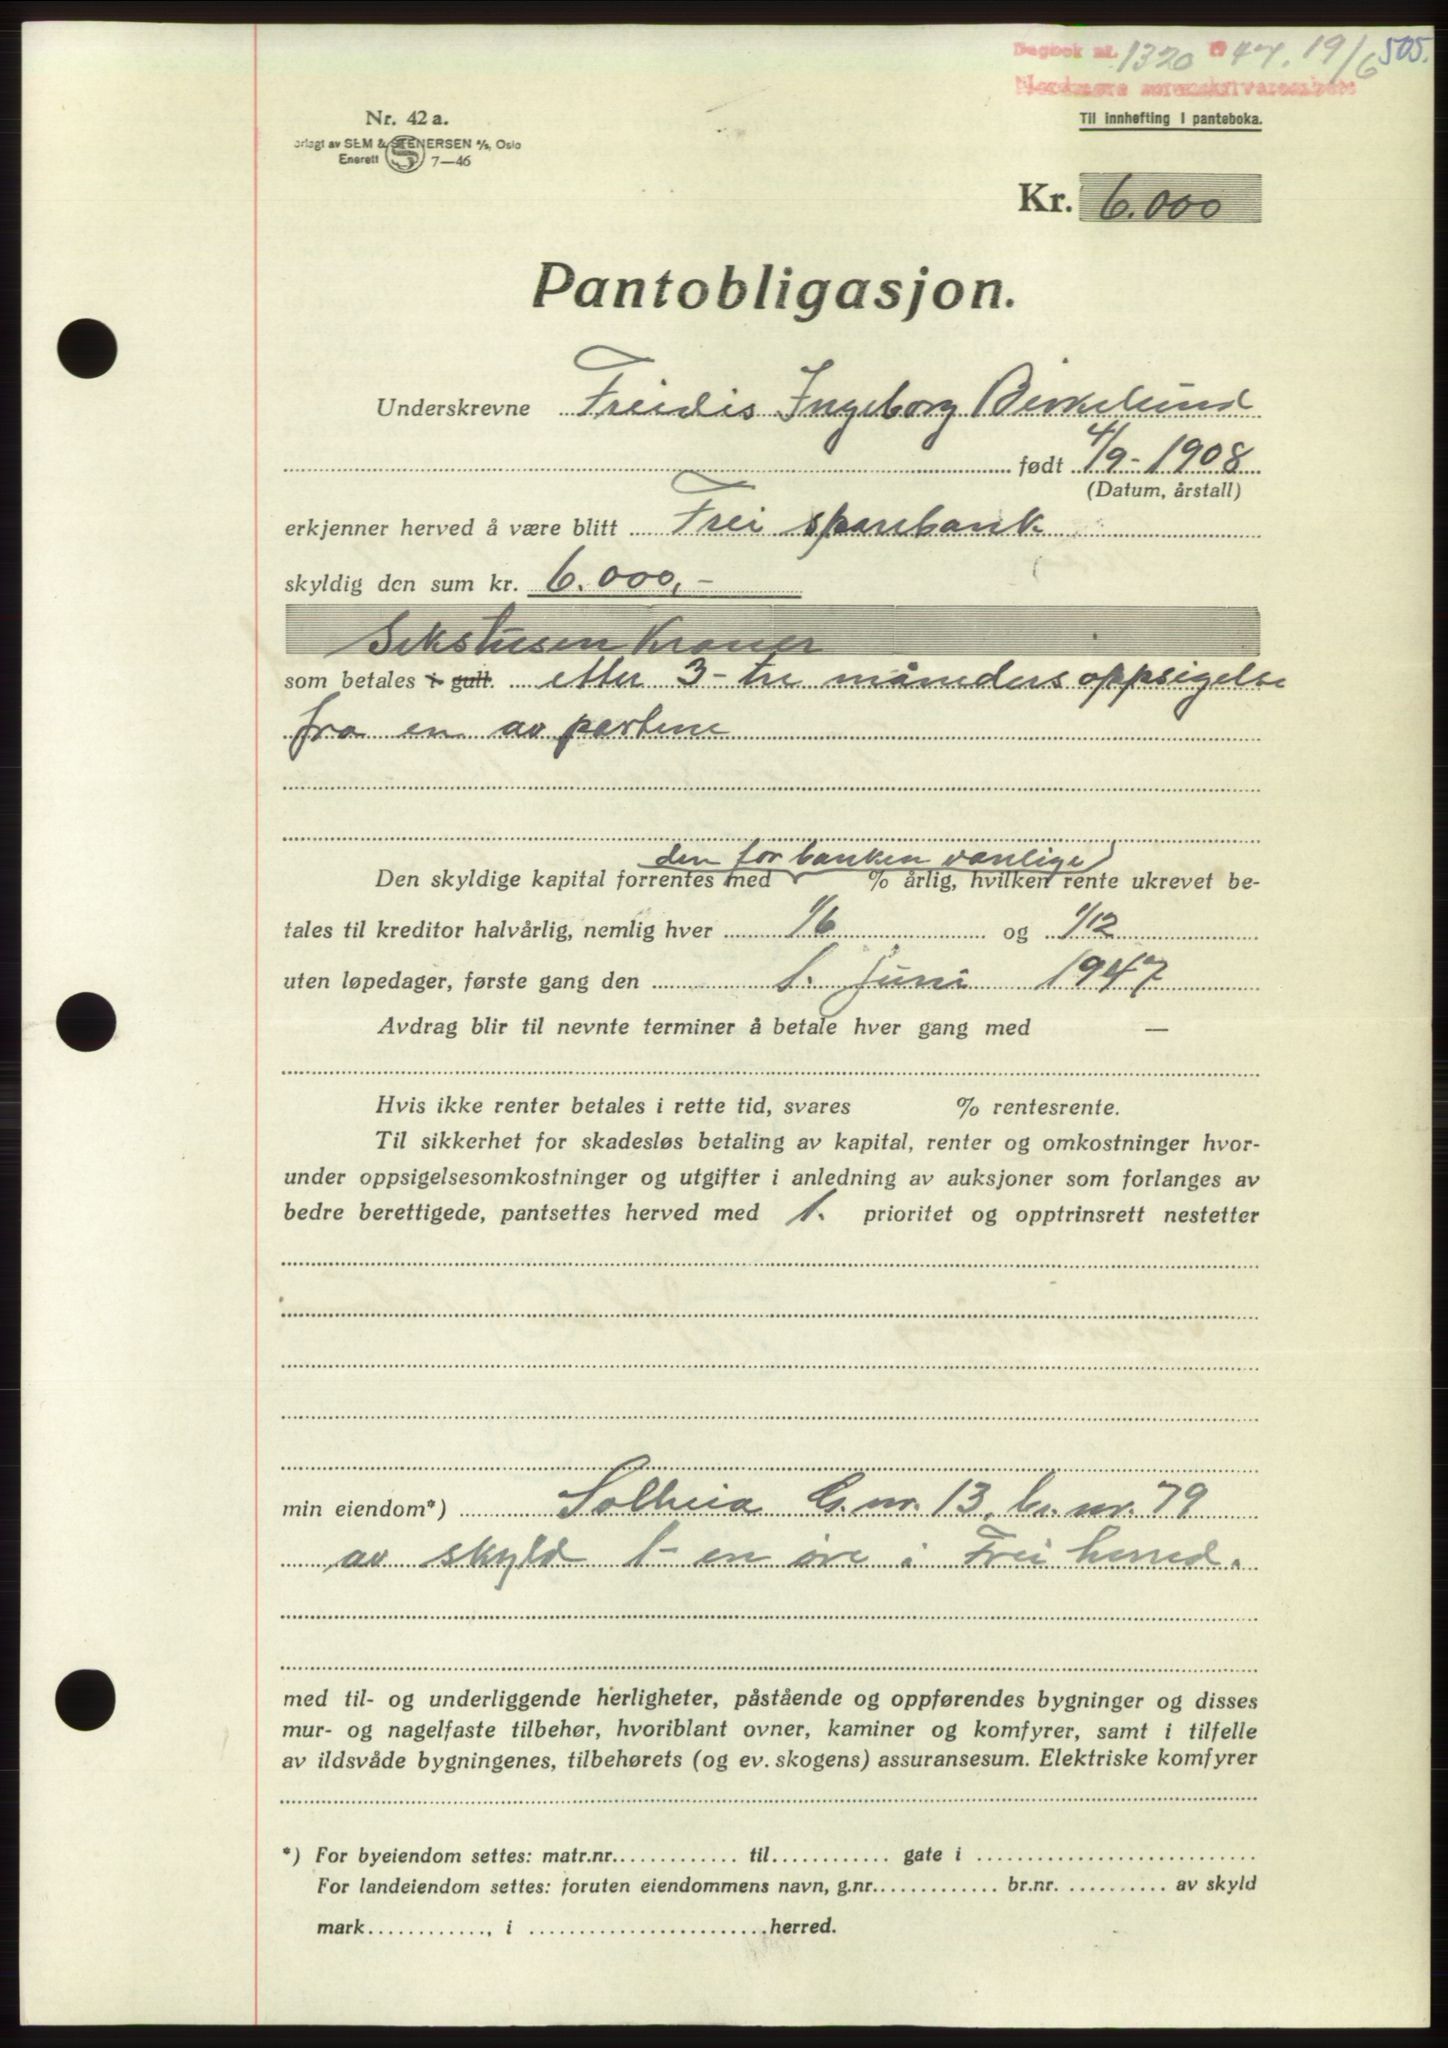 Dagbok nr. 1320 1947. 19/6 505.
Nordmøre sorenskriverembete
Til innhefting i panteboka.
Nr. 42 a.
orlagt av SEM & STENERSEN A/S, Oslo
Enerett S 7—46
Kr. 6.000
Pantobligasjon.
Underskrevne Freidis Ingeborg Birkelund
født 4/9-1908
(Datum, årstall)
erkjenner herved å være blitt Frei sparebank
skyldig den sum kr. 6.000,-
Sekstusen kroner
som betales i gull. etter 3- tre måneders oppsigelse
fra en av partene
den for banken vanlige
Den skyldige kapital forrentes med % årlig, hvilken rente ukrevet be-
tales til kreditor halvårlig, nemlig hver 1/6 og 1/12
uten løpedager, første gang den 1. juni 1947
Avdrag blir til nevnte terminer å betale hver gang med —
Hvis ikke renter betales i rette tid, svares % rentesrente.
Til sikkerhet for skadesløs betaling av kapital, renter og omkostninger hvor-
under oppsigelsesomkostninger og utgifter i anledning av auksjoner som forlanges av
bedre berettigede, pantsettes herved med 1. prioritet og opptrinsrett nestetter
min eiendom*) Solheia G.nr. 13, br. nr. 79
av skyld 1- en øre i Frei herred.
med til- og underliggende herligheter, påstående og oppførendes bygninger og disses
mur- og nagelfaste tilbehør, hvoriblant ovner, kaminer og komfyrer, samt i tilfelle
av ildsvåde bygningenes, tilbehørets (og ev. skogens) assuransesum. Elektriske komfyrer
*) For byeiendom settes: matr.nr............. til............ gate i ...........................
For landeiendom settes: foruten eiendommens navn, g.nr............. br.nr. .......... av skyld
mark............, i ........................herred.